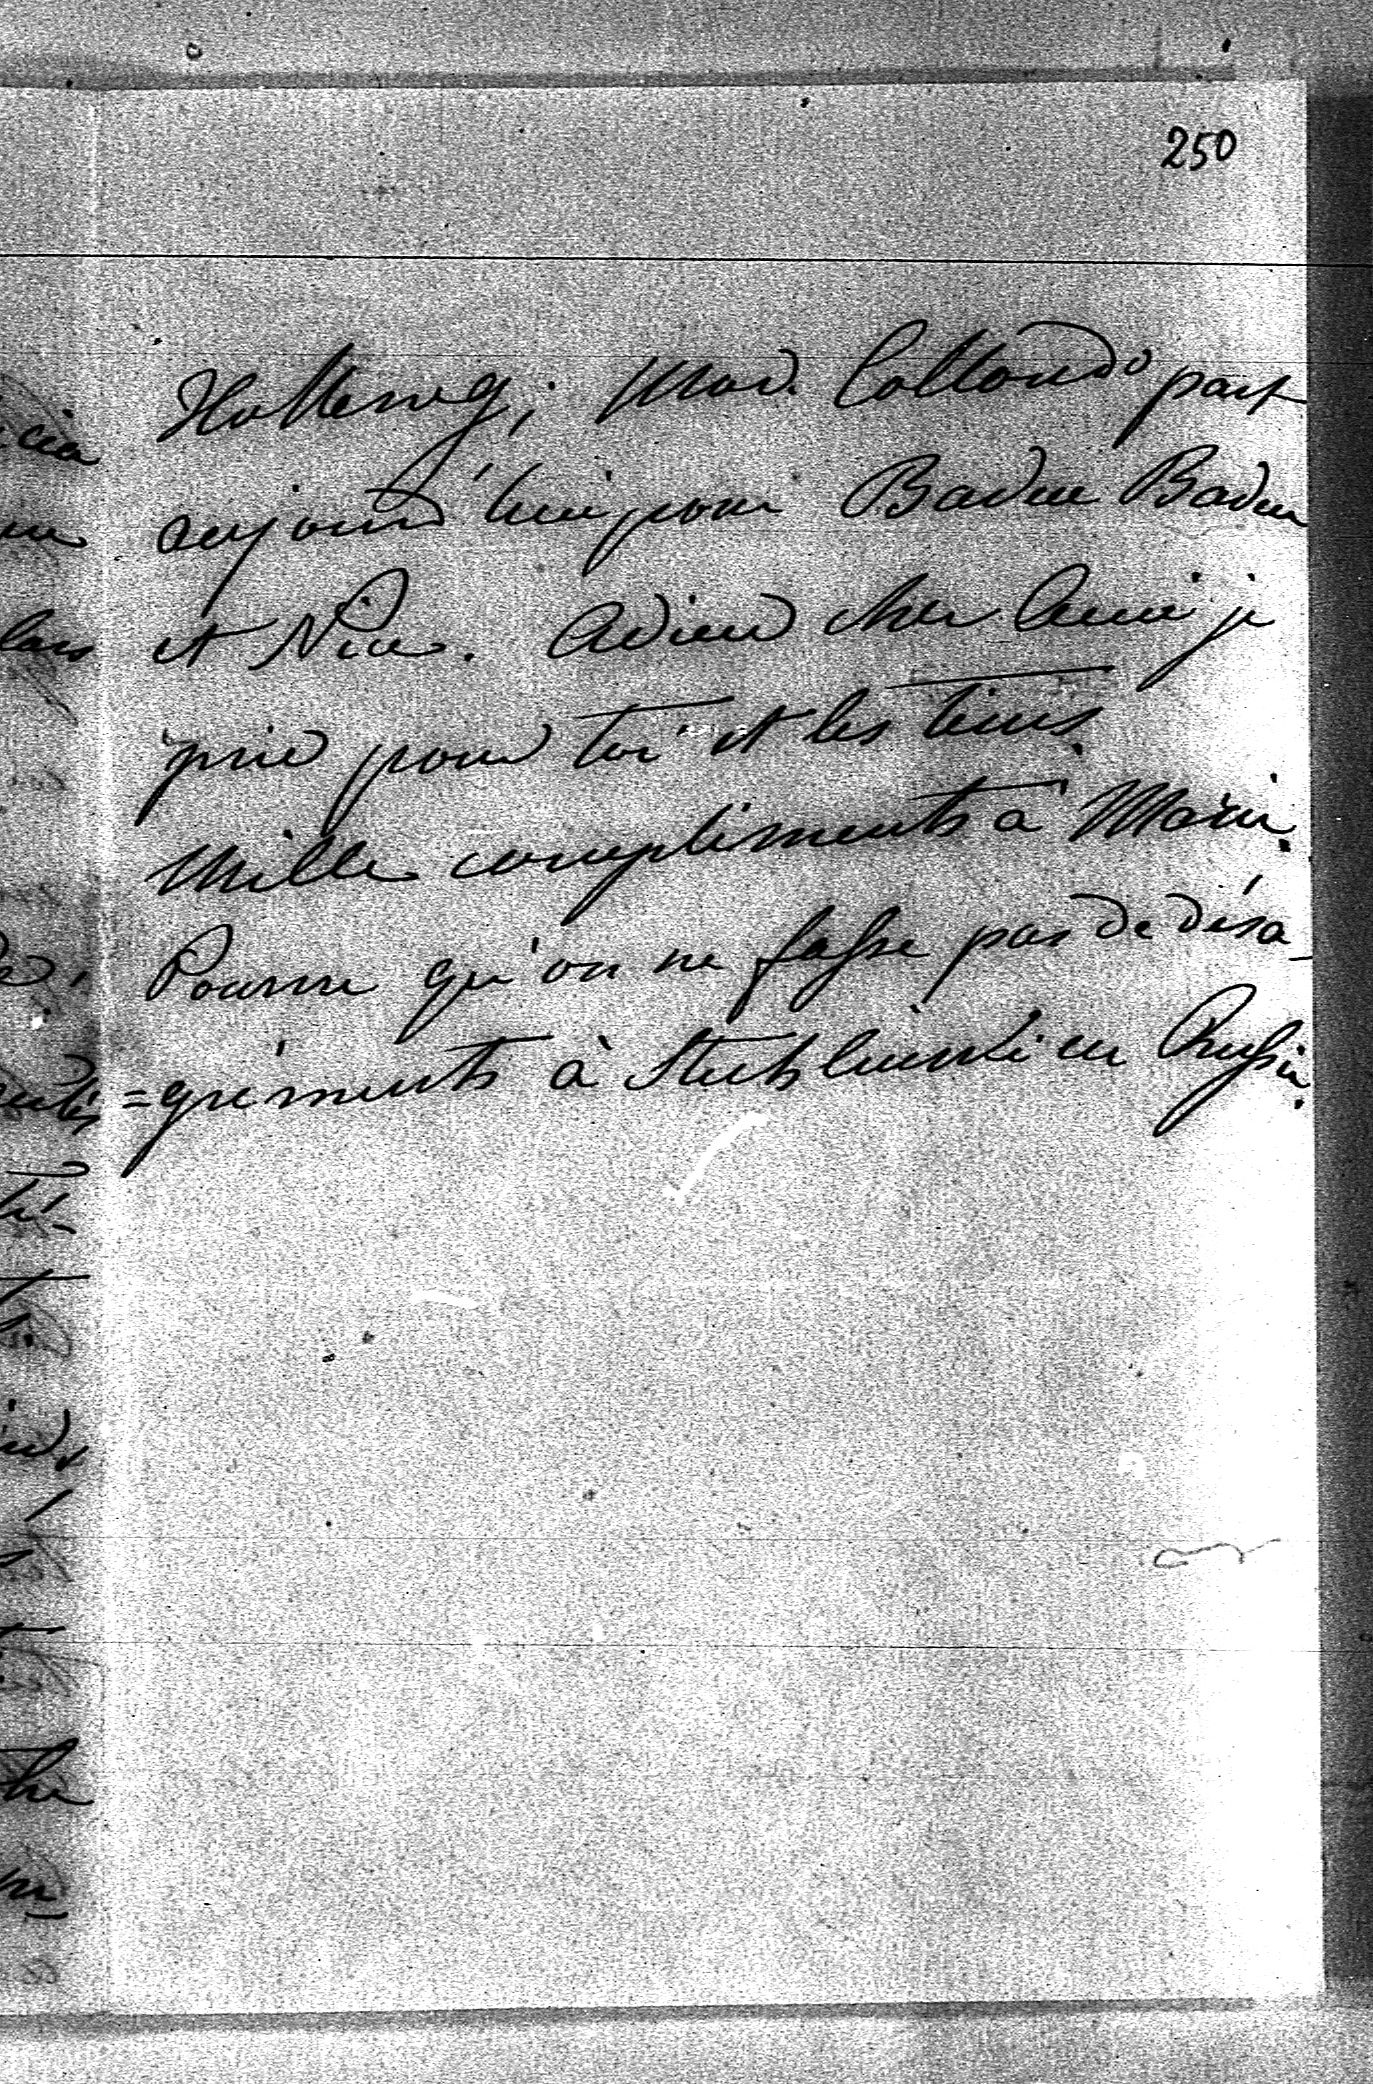 250
Mad. Collond part
aujourd'hui pour Baden Baden
et Nice. Adieu cher Ami je
prie pour toi et les tiens.
Mille compliments à Marie.
Pourvu qu'on ne fasse pas de désa-
=gréments à en Russie.